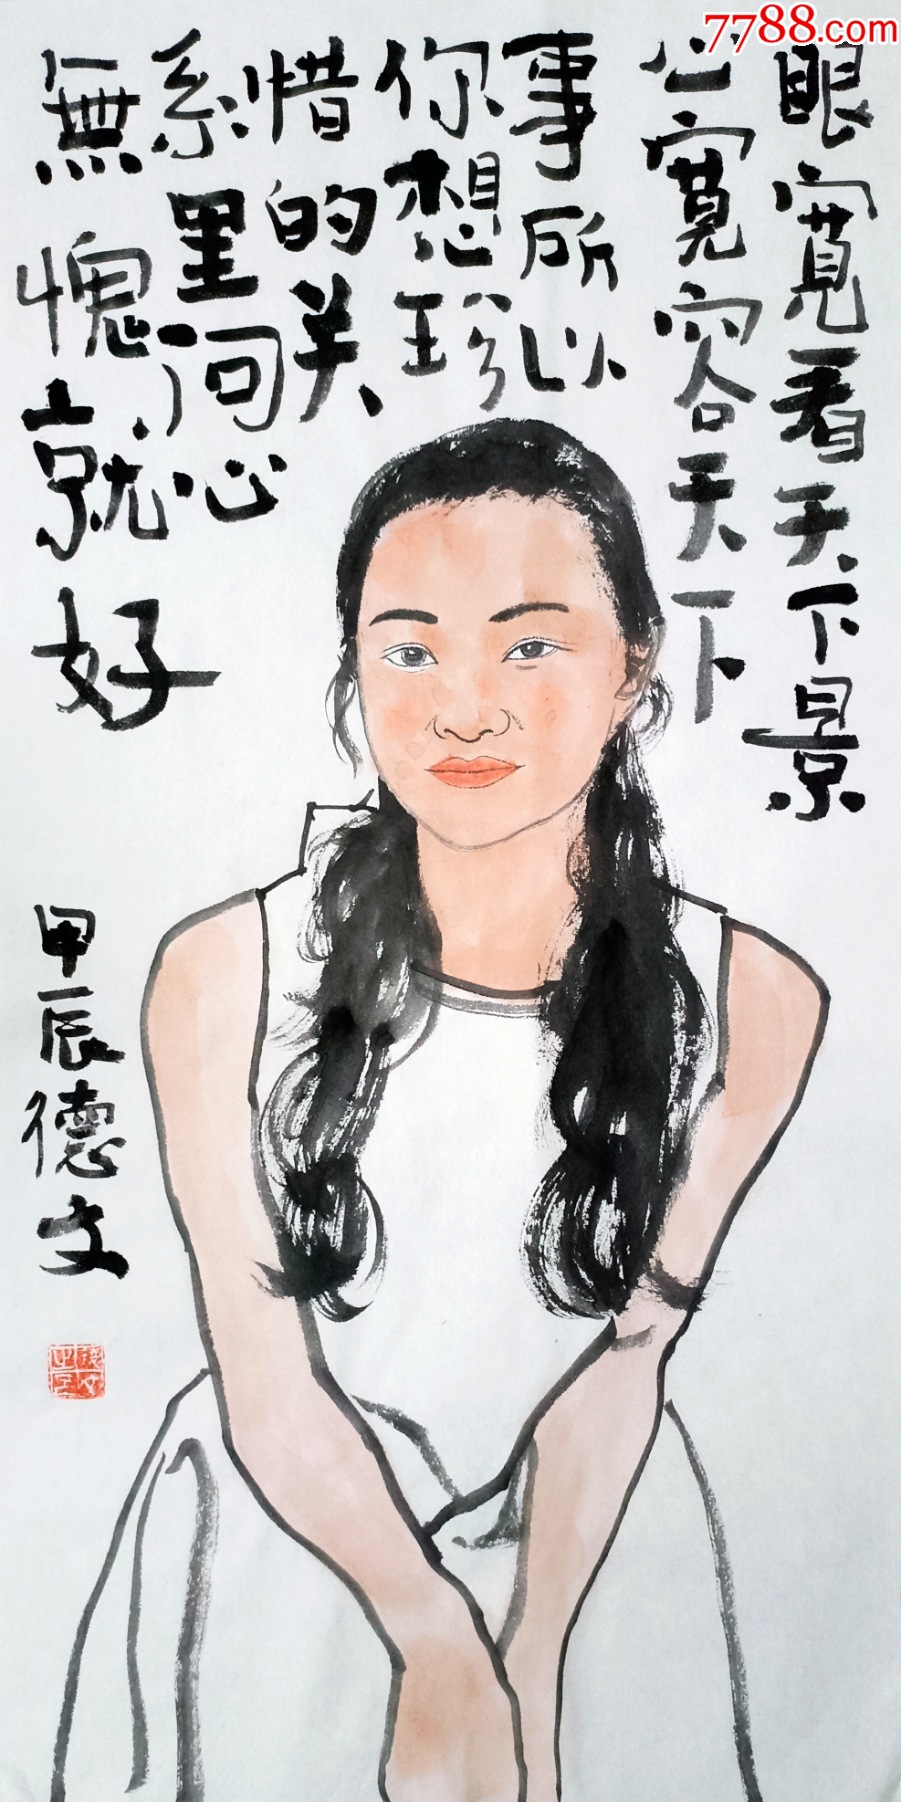 7788.com
眼寬看天下景
心寬容天下
事所以
你想珍
惜的关
系里问心
無愧就好
甲辰德文